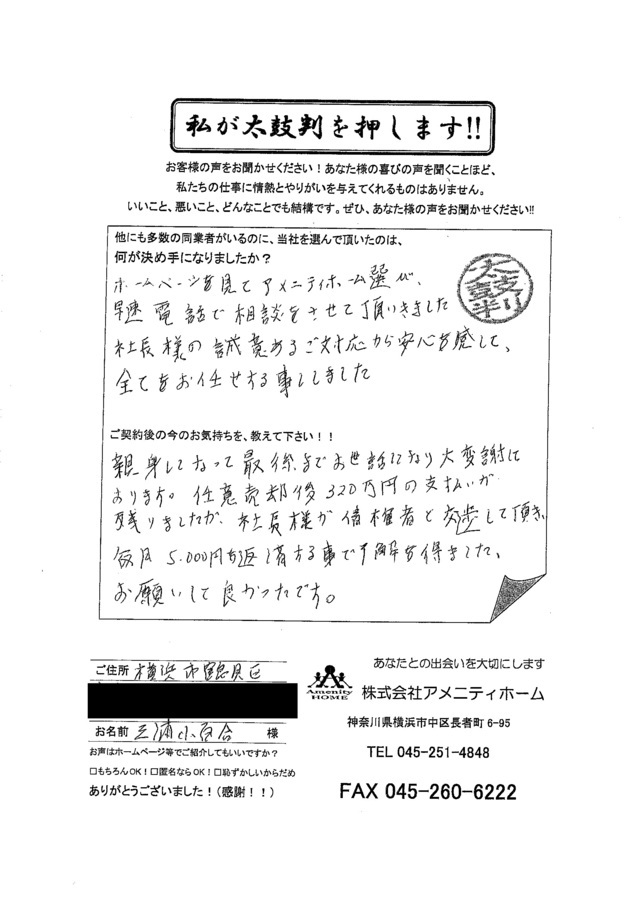 私が太鼓判を押します!!
お客様の声をお聞かせください！あなた様の喜びの声を聞くことほど、
私たちの仕事に情熱とやりがいを与えてくれるものはありません。
いいこと、悪いこと、どんなことでも結構です。ぜひ、あなた様の声をお聞かせください!!
他にも多数の同業者がいるのに、当社を選んで頂いたのは、
何が決め手になりましたか？
太鼓判
ホームページを見てアメニティホーム選び、
早速電話で相談をさせて頂いきました
社長様の誠意あるご対応から安心を感じて、
全てをお任せする事にしました
ご契約後の今のお気持ちを、教えて下さい！！
親身になって最後までお世話になり大変謝に
おります。任意売却後320万円の支払いが
残りましたが、社長様が債権者と交渉して頂き、
毎月5.000円を返済する事で了解を得ました。
お願いして良かったです。
ご住所 横浜市鶴見区
お名前 三浦小百合 様
お声はホームページ等でご紹介してもいいですか？
□もちろんOK！□匿名ならOK！□恥ずかしいからだめ
ありがとうございました！（感謝！！）
あなたとの出会いを大切にします
Amenity HOME
株式会社アメニティホーム
神奈川県横浜市中区長者町6-95
TEL 045-251-4848
FAX 045-260-6222